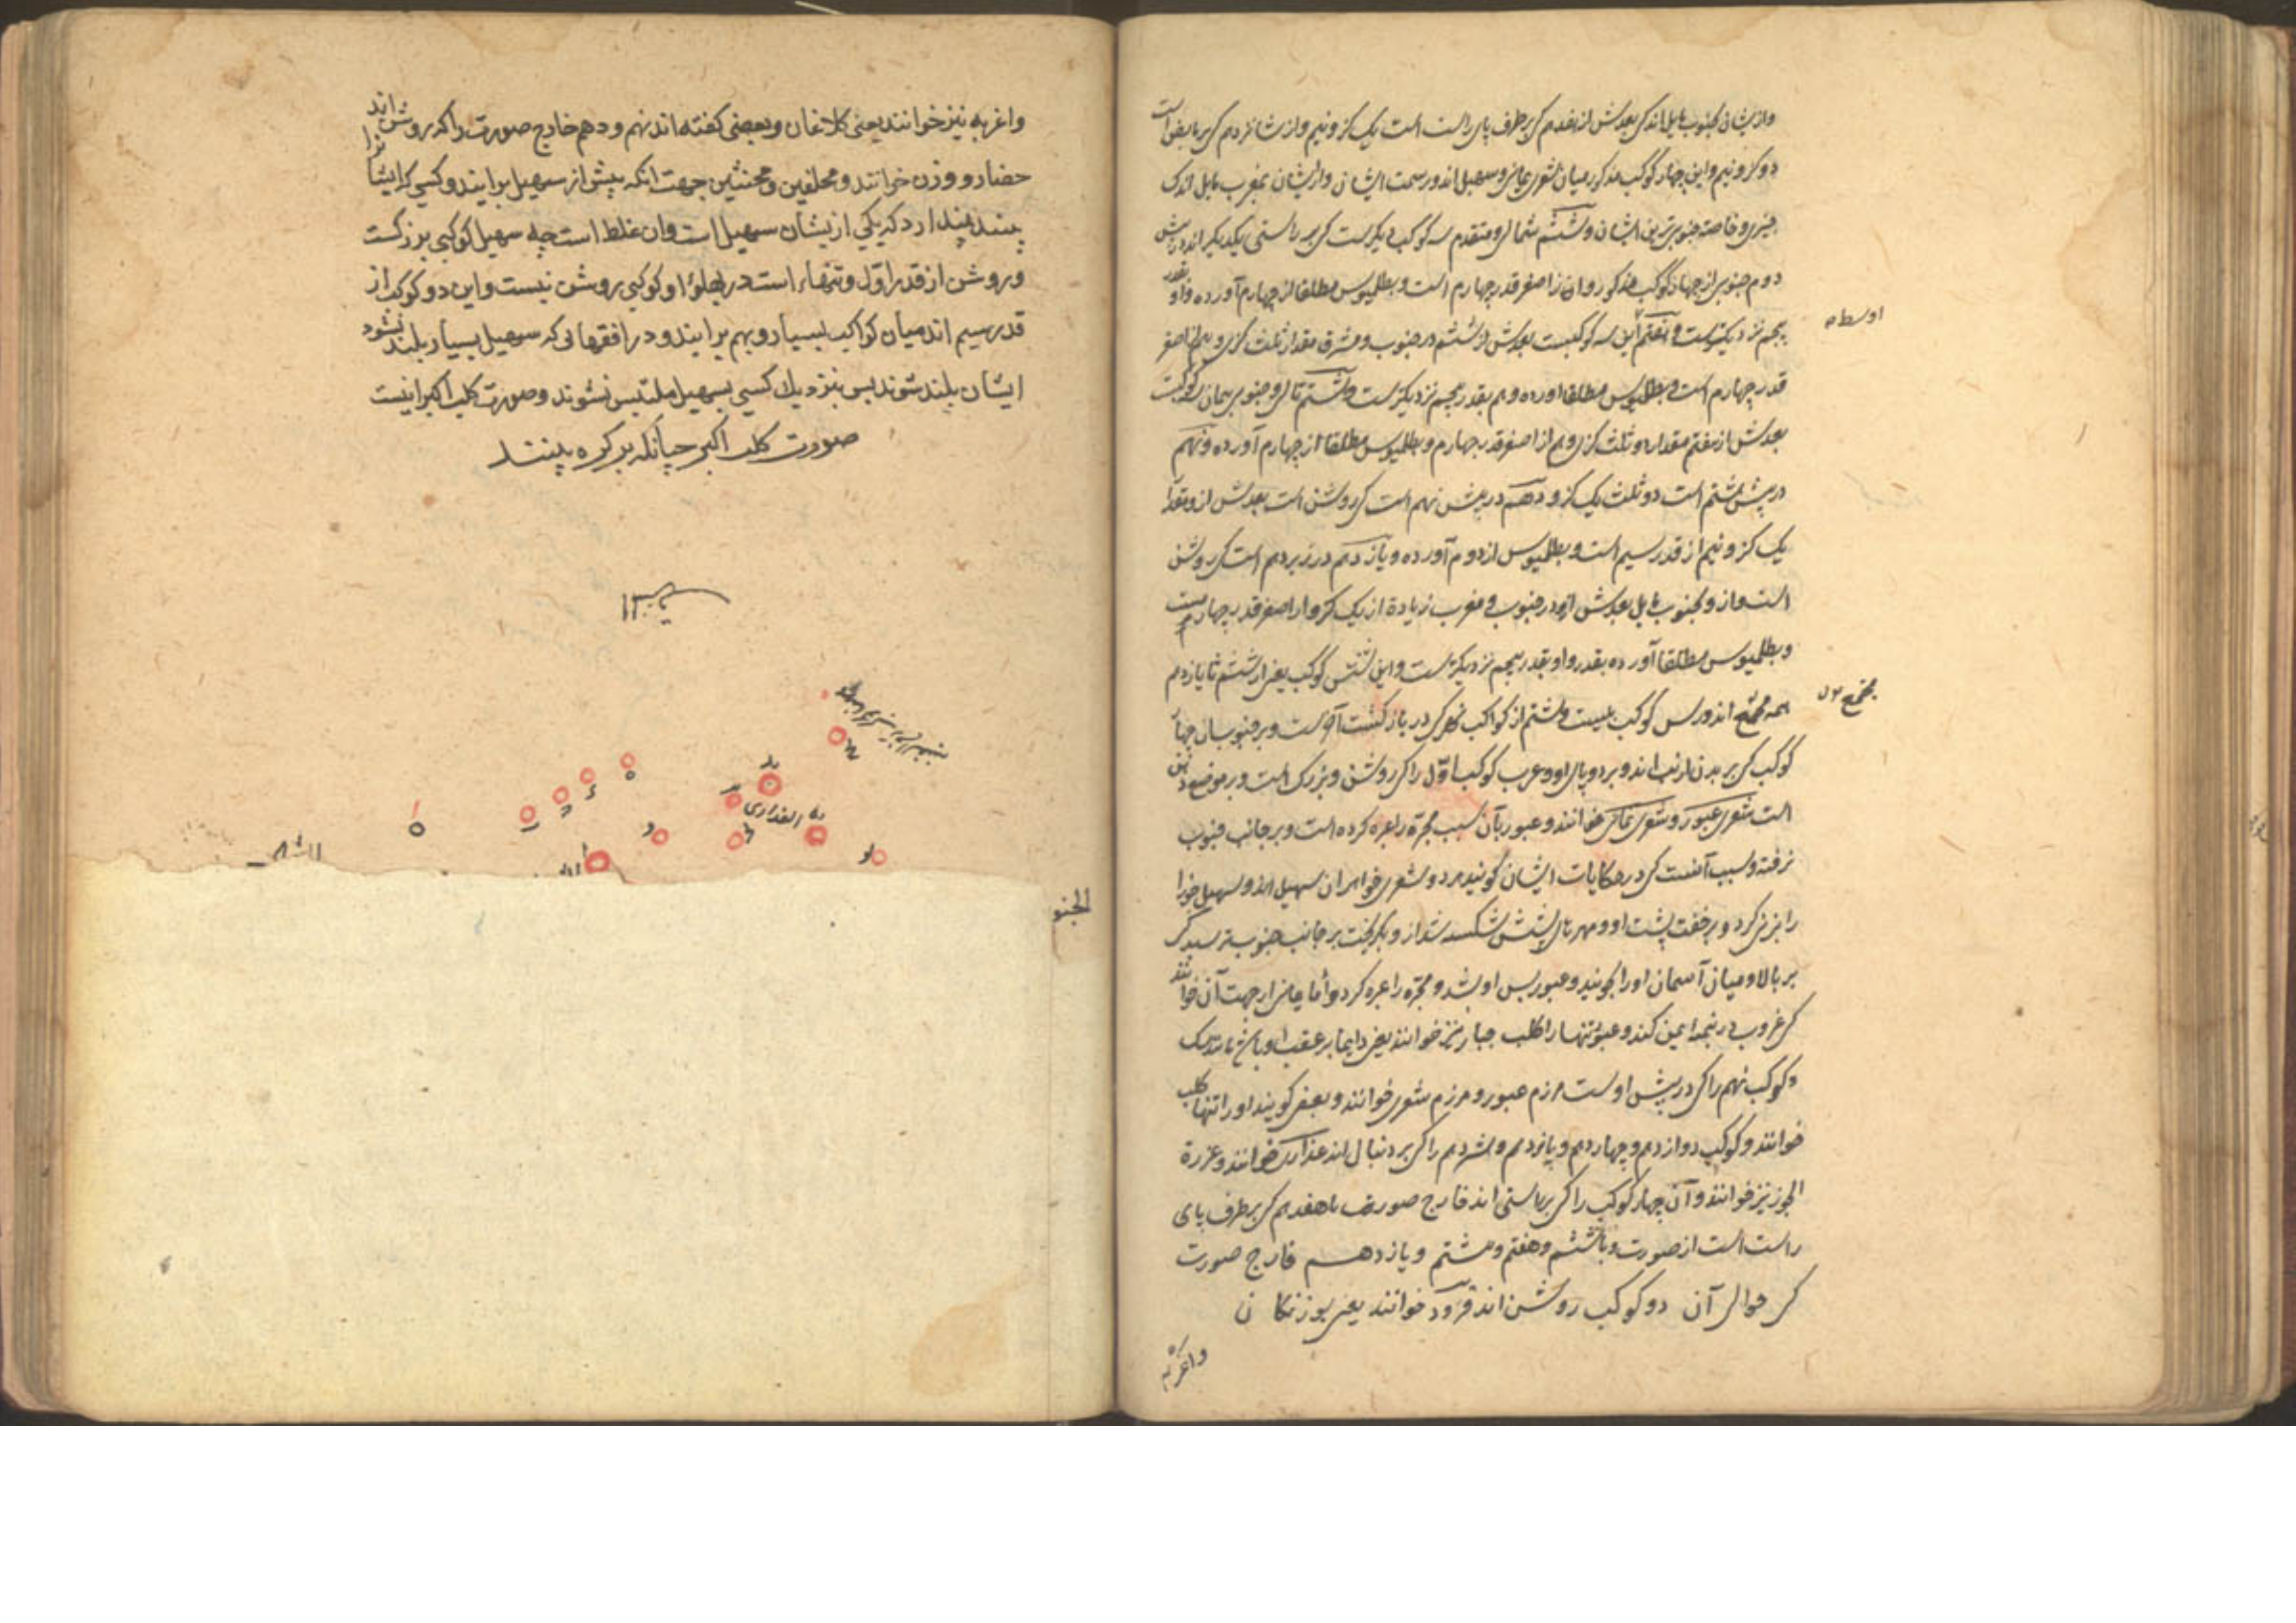 وازیشان بجنوب مایل اند کی بعدش از هفدهم کی بر طرف پای راست است یک کز و نیم و از شانزدهم کی بر مابض است
دو کز و نیم و این چهار کوکب مذکور میان شعری یمانی و سهیل اند در سمت ایشان و ازیشان بمغرب مایل اندک
چیزی و خاصه جنوبی‌ترین ایشان و ششم شمالی و متقدم سه کوکب دیکرست کی بر راستی یکدیکر اند
دوم جنوبی از چهار کوکب مذکور و ان از اصغر قدر چهارم است و بطلمیوس مطلقا از چهارم آورده و او بقدر
پنجم نزدیکترست و هفتم این سه کوکبست بعدش از ششم در جنوب و مشرق مقدار ثلث کزی و هم از اصغر
اوسط
قدر چهارم است و بطلمیوس مطلقا اورده و هم بقدر پنجم نزدیکترست و هشتم تالی و جنوبی همان کوکبست
بعدش از هفتم مقدار دو ثلث کزی و هم از اصغر قدر چهارم و بطلمیوس مطلقا از چهارم آورده و نهم
در پیش هشتم است دو ثلث یک کز و دهم در پیش نهم است کی روشن است بعدش از و مقدار
یک کز و نیم از قدر سیم است و بطلمیوس از دوم آورده و یازدهم در زیر دهم است کی روشن
است و از و بجنوب مایل بعدش ازو در جنوب و مغرب زیادة از یک کز و از اصغر قدر چهارمست
و بطلمیوس مطلقا آورده بقدر و او بقدر پنجم نزدیکترست و این شش کوکب یعنی از ششم تا یازدهم
همه مجتمع اند و بس کوکب بیست و هشتم از کواکب کی در بازکشت آخرست و بر جنوب ان چهار
مجتمع
کوکب کی بر بدن ارنب اند و بر دو پای او و عرب کوکب اول را کی روشن و بزرک است و بر موضع دهن
است شعری عبور و شعری یمانی خوانند و عبور بآن سبب مجرة را عبره کرده است و بر جانب جنوب
رفته و سبب آنست کی در حکایات ایشان کویند هر دو شعری خواهران سهیل اند و سهیل جوزا
را بزنی کرد و بر خفت پشت او و مهرهای پشتش شکسته شد از و بکریخت بر جانب جنوب ترسید کی
بر بالا و میان آسمان او را بجویند و عبور پس او بشد و مجره را عبره کرد و اما یمانی از جهت آن خوانند
کی غروب در نیمه ایمن کند و عبور تنها را کلب جبار نیز خوانند یعنی دایما بر عقب او باشد مانند سک
و کوکب نهم را کی در پیش اوست مرزم عبور و مرزم شعری خوانند و بعضی کویند او را تنها کلب
خوانند و کوکب دوازدهم و چهاردهم و پانزدهم و هشردهم را کی بر دنبال اند عذاری خوانند و عذرة
الجوز نیز خوانند و آن چهار کوکب را کی بر راستی اند خارج صورت با هفدهم کی بر طرف پای
راست است از صورت و با ششم و هفتم و هشتم و یازدهم خارج صورت
کی حوالی آن دو کوکب روشن اند قرود خوانند یعنی بوزنکان
واغربه
واغربه نیز خوانند یعنی کلاغان و بعضی کفته اند نهم و دهم خارج صورت را که روشن اند
حضار و وزن خوانند و محلفین و محنثین جهت انکه پیش از سهیل برایند و کسی که ایشانرا
بیند پندارد که یکی ازیشان سهیل است و ان غلط است چه سهیل کوکبی بزرکست
و روشن از قدر اول و تنها است در پهلوء او کوکبی روشن نیست و این دو کوکب از
قدر سیم اند میان کواکب بسیار و بهم برایند و در افقهائی که سهیل بسیار بلند نشود
ایشان بلند شوند پس نزدیک کسی بسهیل ملتبس نشوند و صورت کلب اکبر اینست
صورت کلب اکبر چنانکه بر کره بینند
العذاری
الجنو